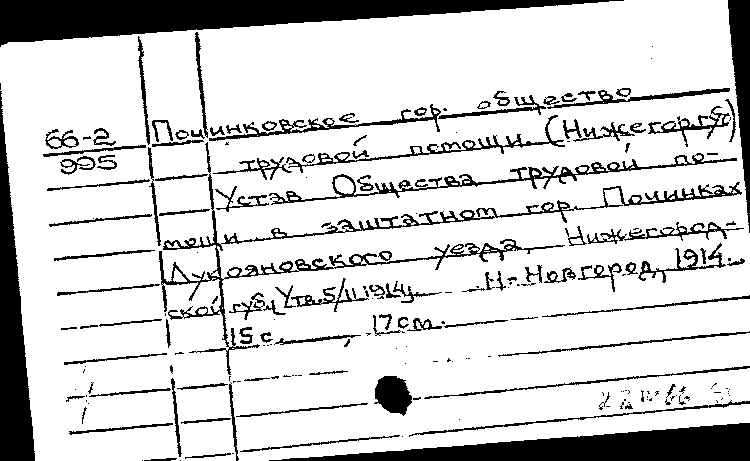 66-2
995
Починковское гор. общество
трудовой помощи. (Нижегор.губ)
Устав Общества трудовой по-
мощи в заштатном гор. Починках
Лукояновского уезда, Нижегород-
ской губ. (Утв. 5/II 1914). Н-Новгород, 1914.
15 с. , 17 cm.